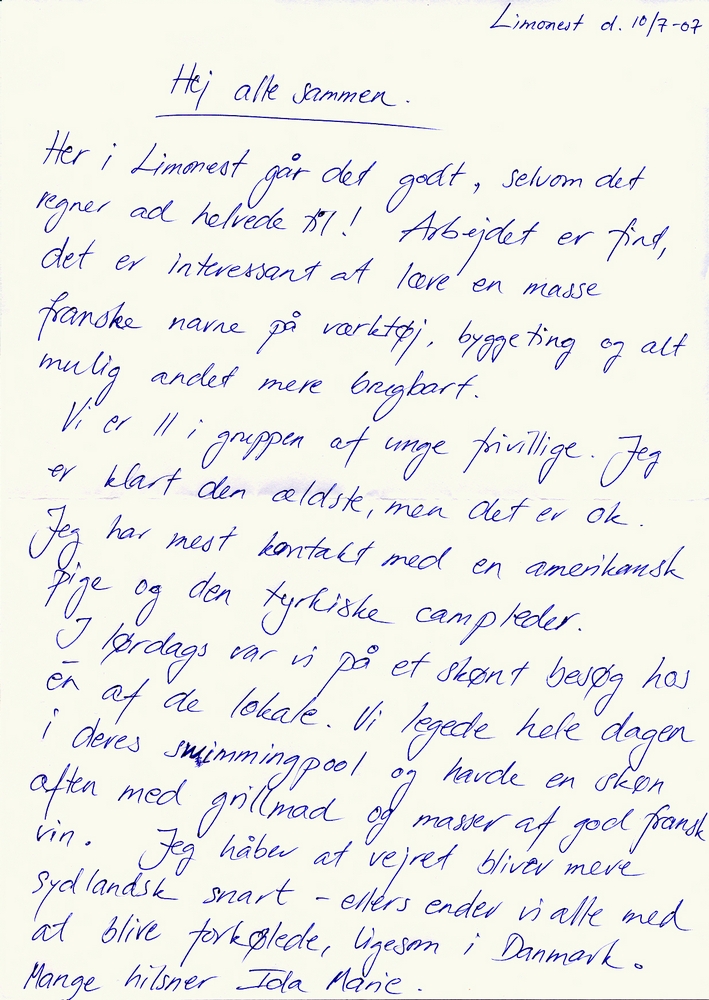 Limonest d. 10/7-07
Hej alle sammen.
Her i Limonest går det godt, selvom det
regner ad helvede til! Arbejdet er fint,
det er interessant at lære en masse
franske navne på værktøj, byggeting og alt
mulig andet mere brugbart.
Vi er 11 i gruppen af unge frivillige. Jeg
er klart den ældste, men det er ok.
Jeg har mest kontakt med en amerikansk
pige og den tyrkiske campleder.
I lørdags var vi på et skønt besøg hos
én af de lokale. Vi legede hele dagen
i deres swimmingpool og havde en skøn
aften med grillmad og masser af god fransk
vin. Jeg håber at vejret bliver mere
sydlandsk snart - ellers ender vi alle med
at blive forkølede, ligesom i Danmark.
Mange hilsner Ida Marie.